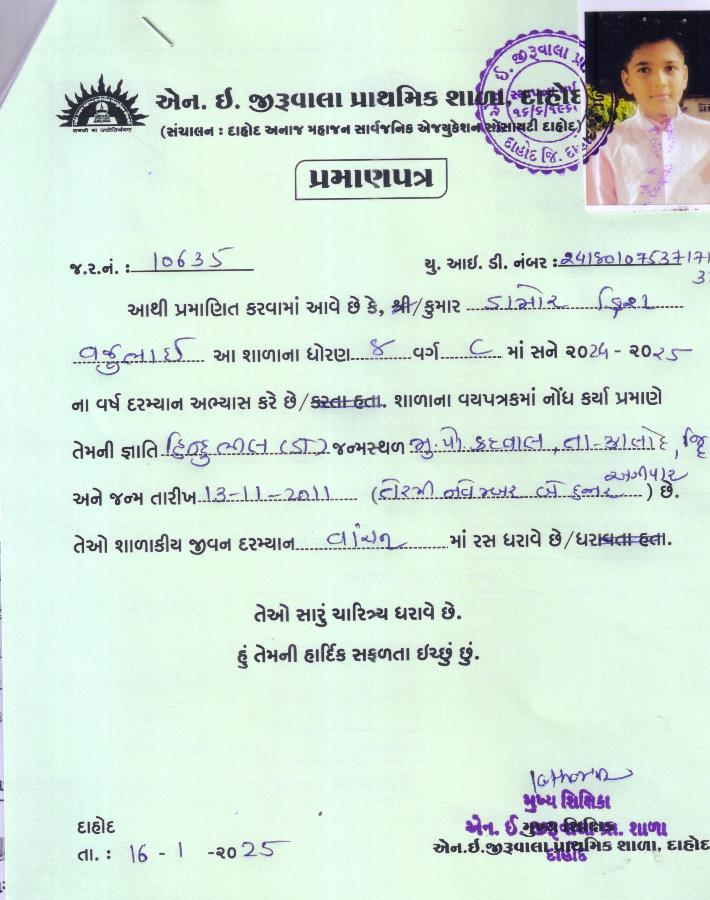 એન. ઇ. જીરૂવાલા પ્રાથમિક શાળા, દાહોદ
(સંચાલન : દાહોદ અનાજ મહાજન સાર્વજનિક એજયુકેશન સોસાયટી દાહોદ)
પ્રમાણપત્ર
જ.ર.નં. : 10635 યુ. આઇ. ડી. નંબર : 24180107537171
આથી પ્રમાણિત કરવામાં આવે છે કે, શ્રી/કુમાર ડામોર
વજુભાઈ આ શાળાના ધોરણ ૪ વર્ગ C માં સને ૨૦24 - ૨૦૨5
ના વર્ષ દરમ્યાન અભ્યાસ કરે છે/કરતા હતા. શાળાના વયપત્રકમાં નોંધ કર્યા પ્રમાણે
તેમની જ્ઞાતિ હિન્દુ ભીલ જન્મસ્થળ મુ.પો કદવાલ, તા-ઝાલોદ,
અને જન્મ તારીખ 13-11-2011 (તેરમી નવેમ્બર બે હજાર અગીયાર) છે.
તેઓ શાળાકીય જીવન દરમ્યાન વાંચન માં રસ ધરાવે છે/ધરાવતા હતા.
તેઓ સારું ચારિત્ર્ય ધરાવે છે.
હું તેમની હાર્દિક સફળતા ઇચ્છું છું.
મુખ્ય શિક્ષિકા
દાહોદ
એન. ઈ. જીરૂવાલા પ્રા. શાળા
દાહોદ
તા. : 16 - 1 -૨૦25
એન.ઇ.જીરૂવાલા પ્રાથમિક શાળા, દાહોદ